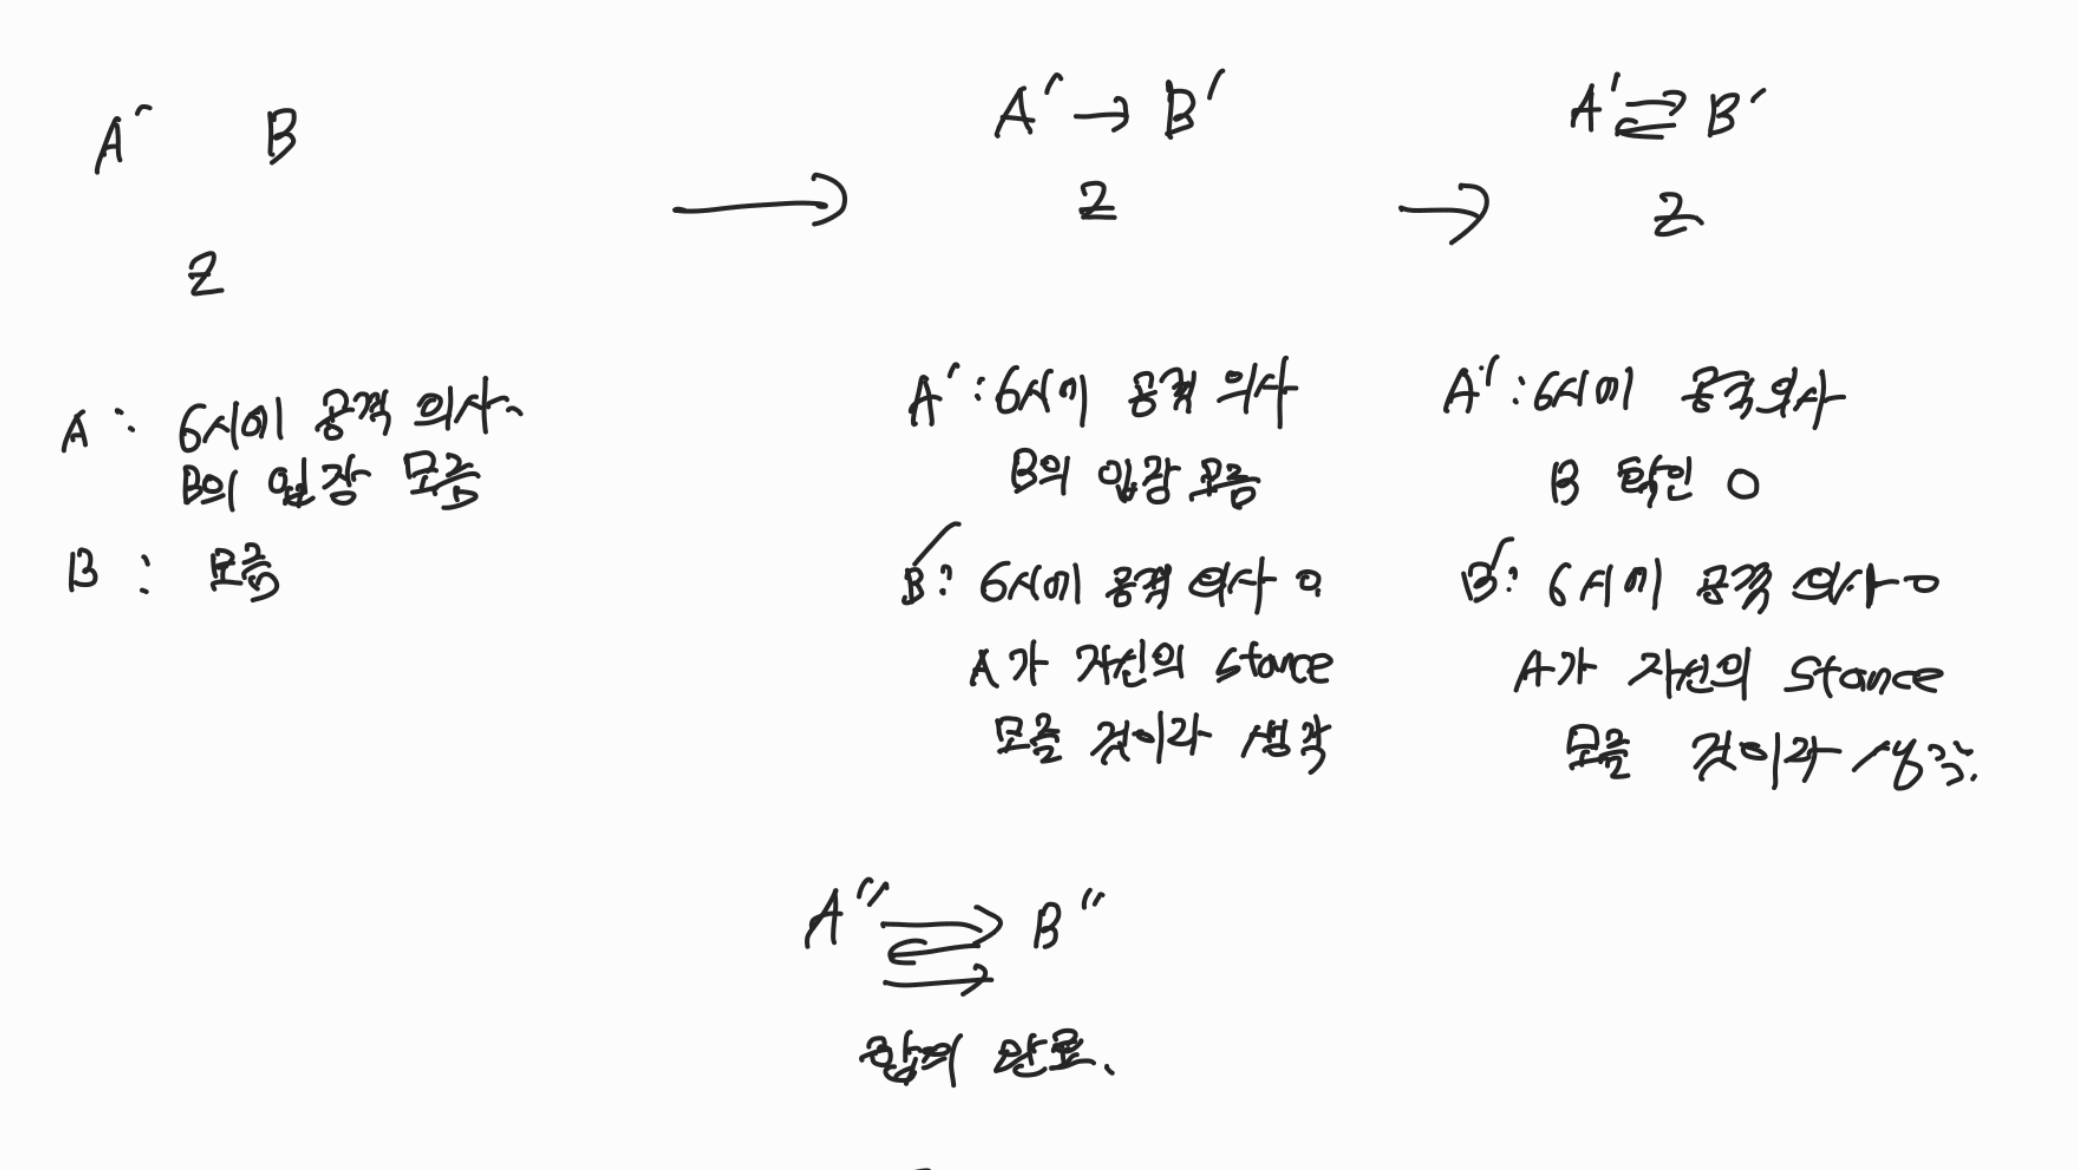 A' B
Z
A : 6시에 공격 의사
B의 입장 모름
B : 모름
A' → B'
Z
A' : 6시에 공격 의사
B의 입장 모름
B' : 6시에 공격 의사 o
A가 자신의 stance
모를 것이라 생각
A' ⇄ B'
Z
A' : 6시에 공격의사
B 확인 O
B' : 6시에 공격 의사 o
A가 자신의 stance
모를 것이라 생각.
A'' B''
합의 완료.